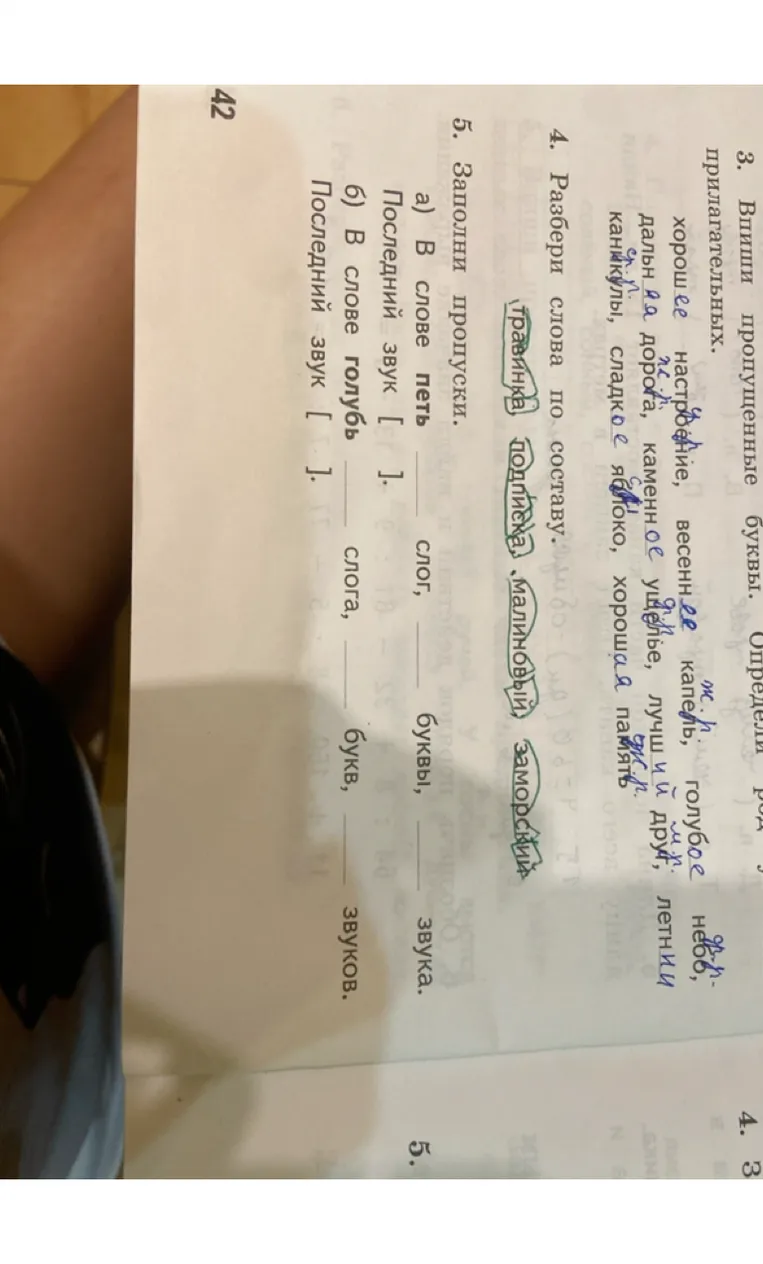 3. Впиши пропущенные буквы. Определи род
прилагательных.
хорошее настроение, весеннее капель, голубое небо,
дальняя дорога, каменное ущелье, лучший друг, летнии
каникулы, сладкое яблоко, хорошая память
ж.р.
ж.р.
м.р.
ж.р.
4. Разбери слова по составу.
травинка, подписка, малиновый, заморский
5. Заполни пропуски.
а) В слове петь ____ слог, ____ буквы, ____ звука.
Последний звук [ ].
б) В слове голубь ____ слога, ____ букв, ____ звуков.
Последний звук [ ].
42
4. З
5.